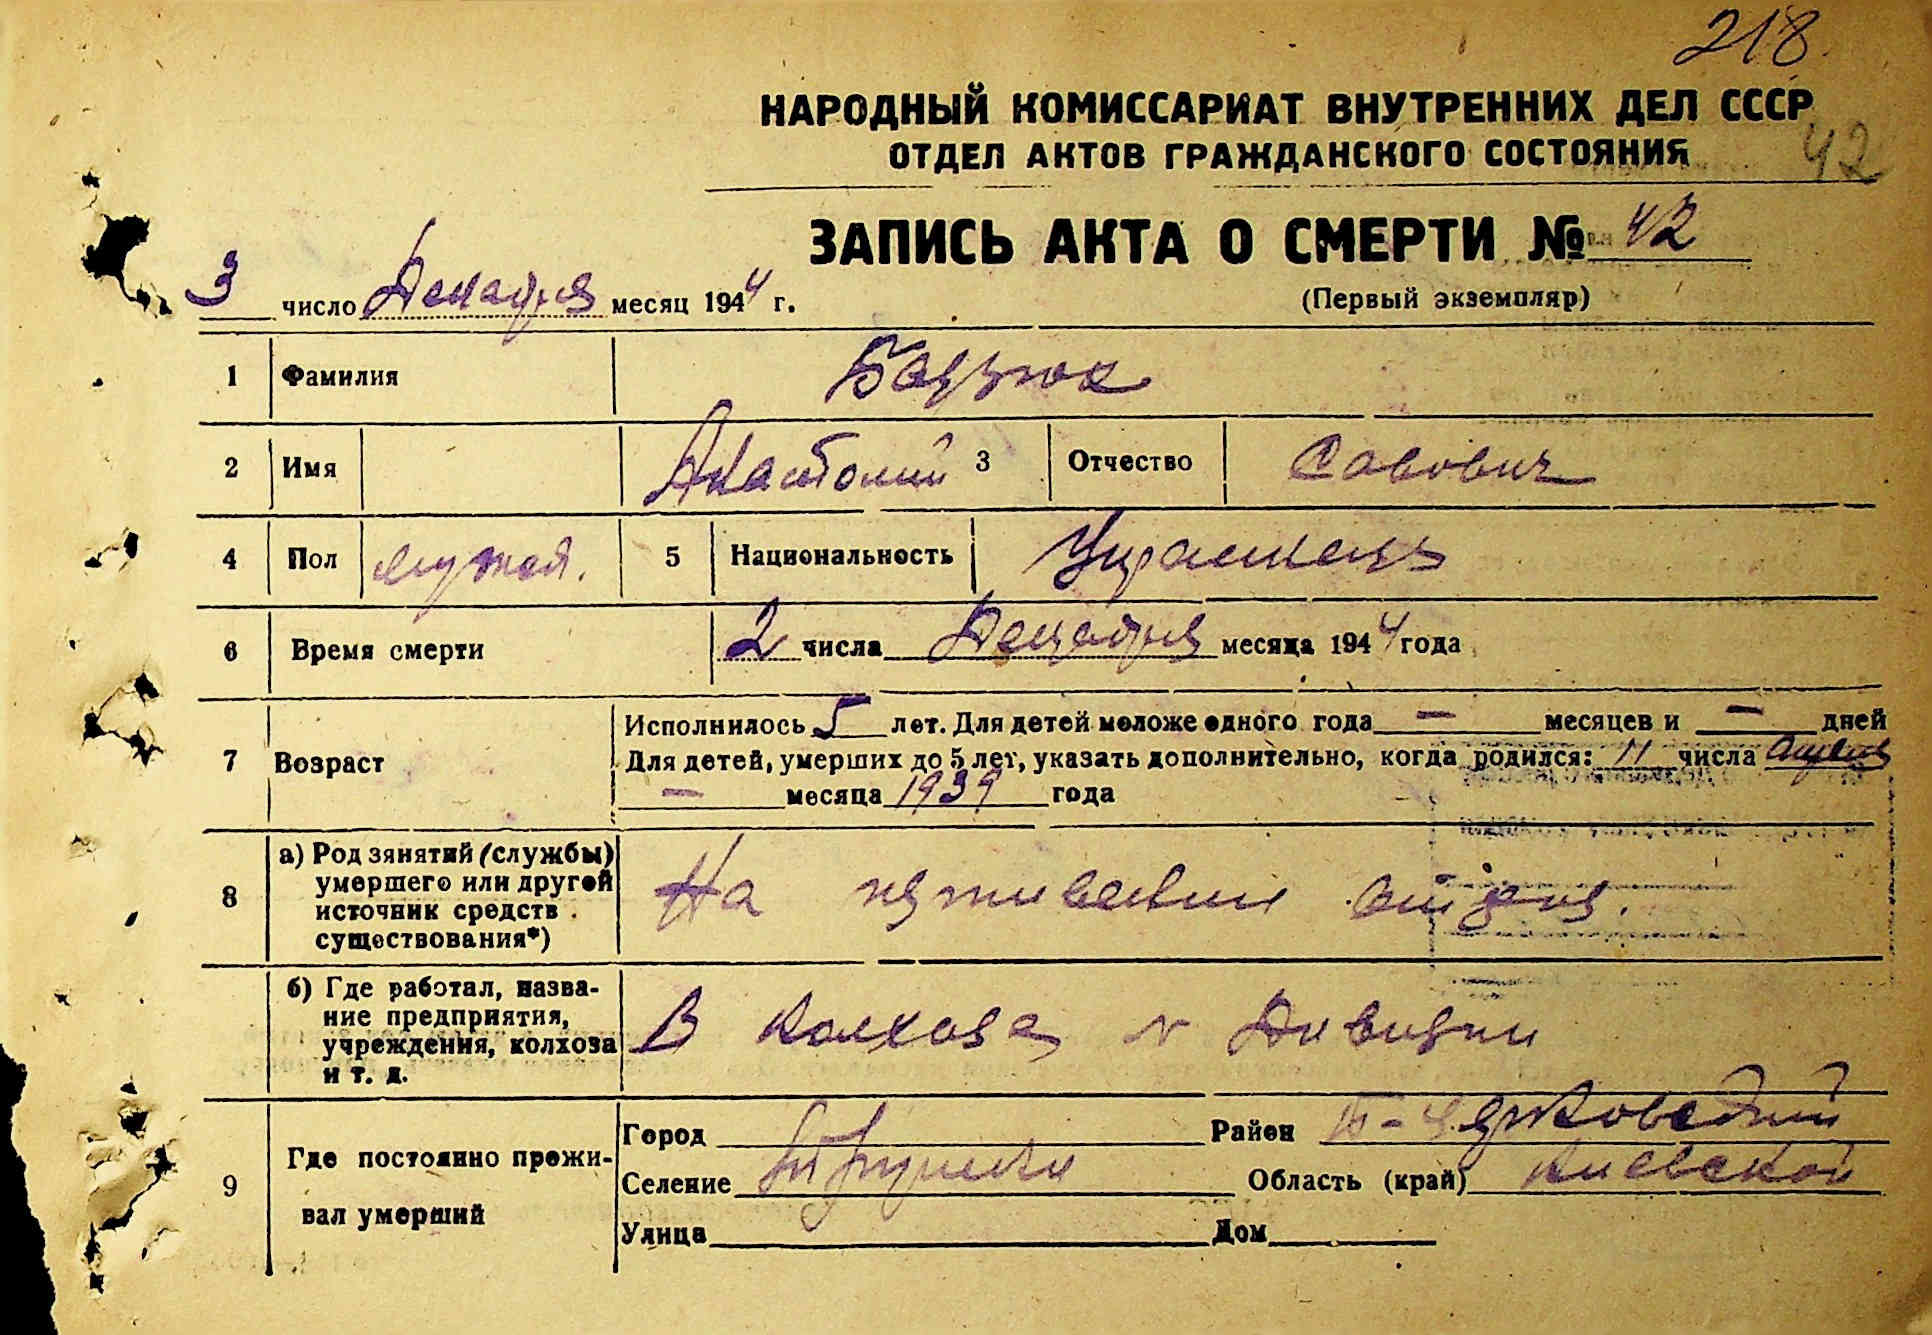 218
НАРОДНЫЙ КОМИССАРИАТ ВНУТРЕННИХ ДЕЛ СССР
ОТДЕЛ АКТОВ ГРАЖДАНСКОГО СОСТОЯНИЯ
42
ЗАПИСЬ АКТА О СМЕРТИ № 42
3 число Декабря месяц 1944 г.
(Первый экземпляр)
1 Фамилия
2 Имя Анатолий 3 Отчество Савович
4 Пол мужской. 5 Национальность Украинец
6 Время смерти 2 числа Декабря месяца 1944 года
7 Возраст Исполнилось 5 лет. Для детей моложе одного года — месяцев и — дней
Для детей, умерших до 5 лет, указать дополнительно, когда родился: 11 числа апреля
— месяца 1939 года
8 а) Род занятий (службы) умершего или другой источник средств существования*) На
б) Где работал, название предприятия, учреждения, колхоза и т. д. В колхозе
9 Где постоянно проживал умерший Город Район Б-Церковский
Селение Область (край) Киевской
Улица Дом